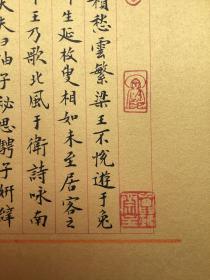 積愁雲繁梁王不悅遊于兔
生延枚叟相如未至居客之
王乃歌北風于衛詩詠南
夫曰抽子祕思騁子妍